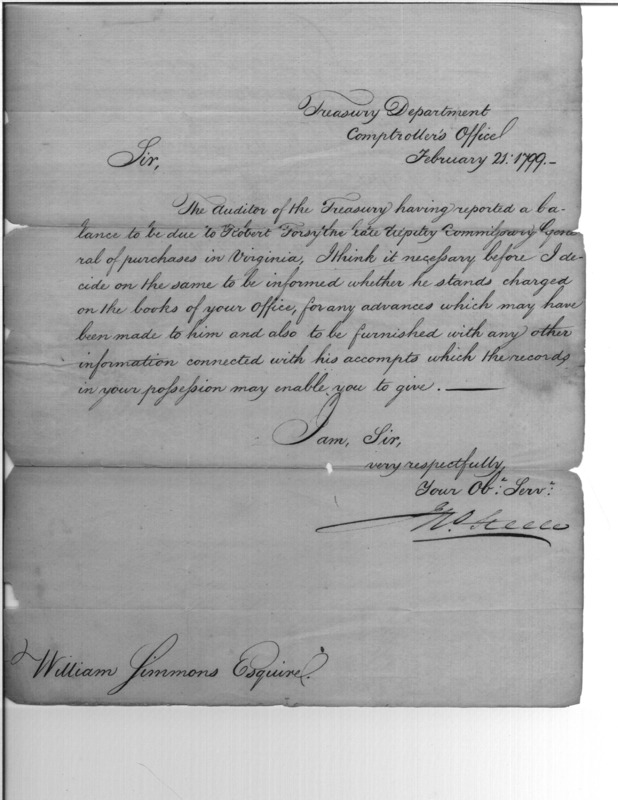 Treasury Department
Comptroller's Office
February 21: 1799.-
Sir,
The Auditor of the Treasury having reported a ba-
lance to be due to Robert Forsythe late deputy Commissary Gene
ral of purchases in Virginia, I think it necessary before I de-
cide on the same to be informed whether he stands charged
on the books of your Office, for any advances which may have
been made to him and also to be furnished with any other
information connected with his accompts which the records
in your possession may enable you to give. —
I am, Sir,
very respectfully,
Your Obt. Servt.
Jno. Steele
William Simmons Esquire.